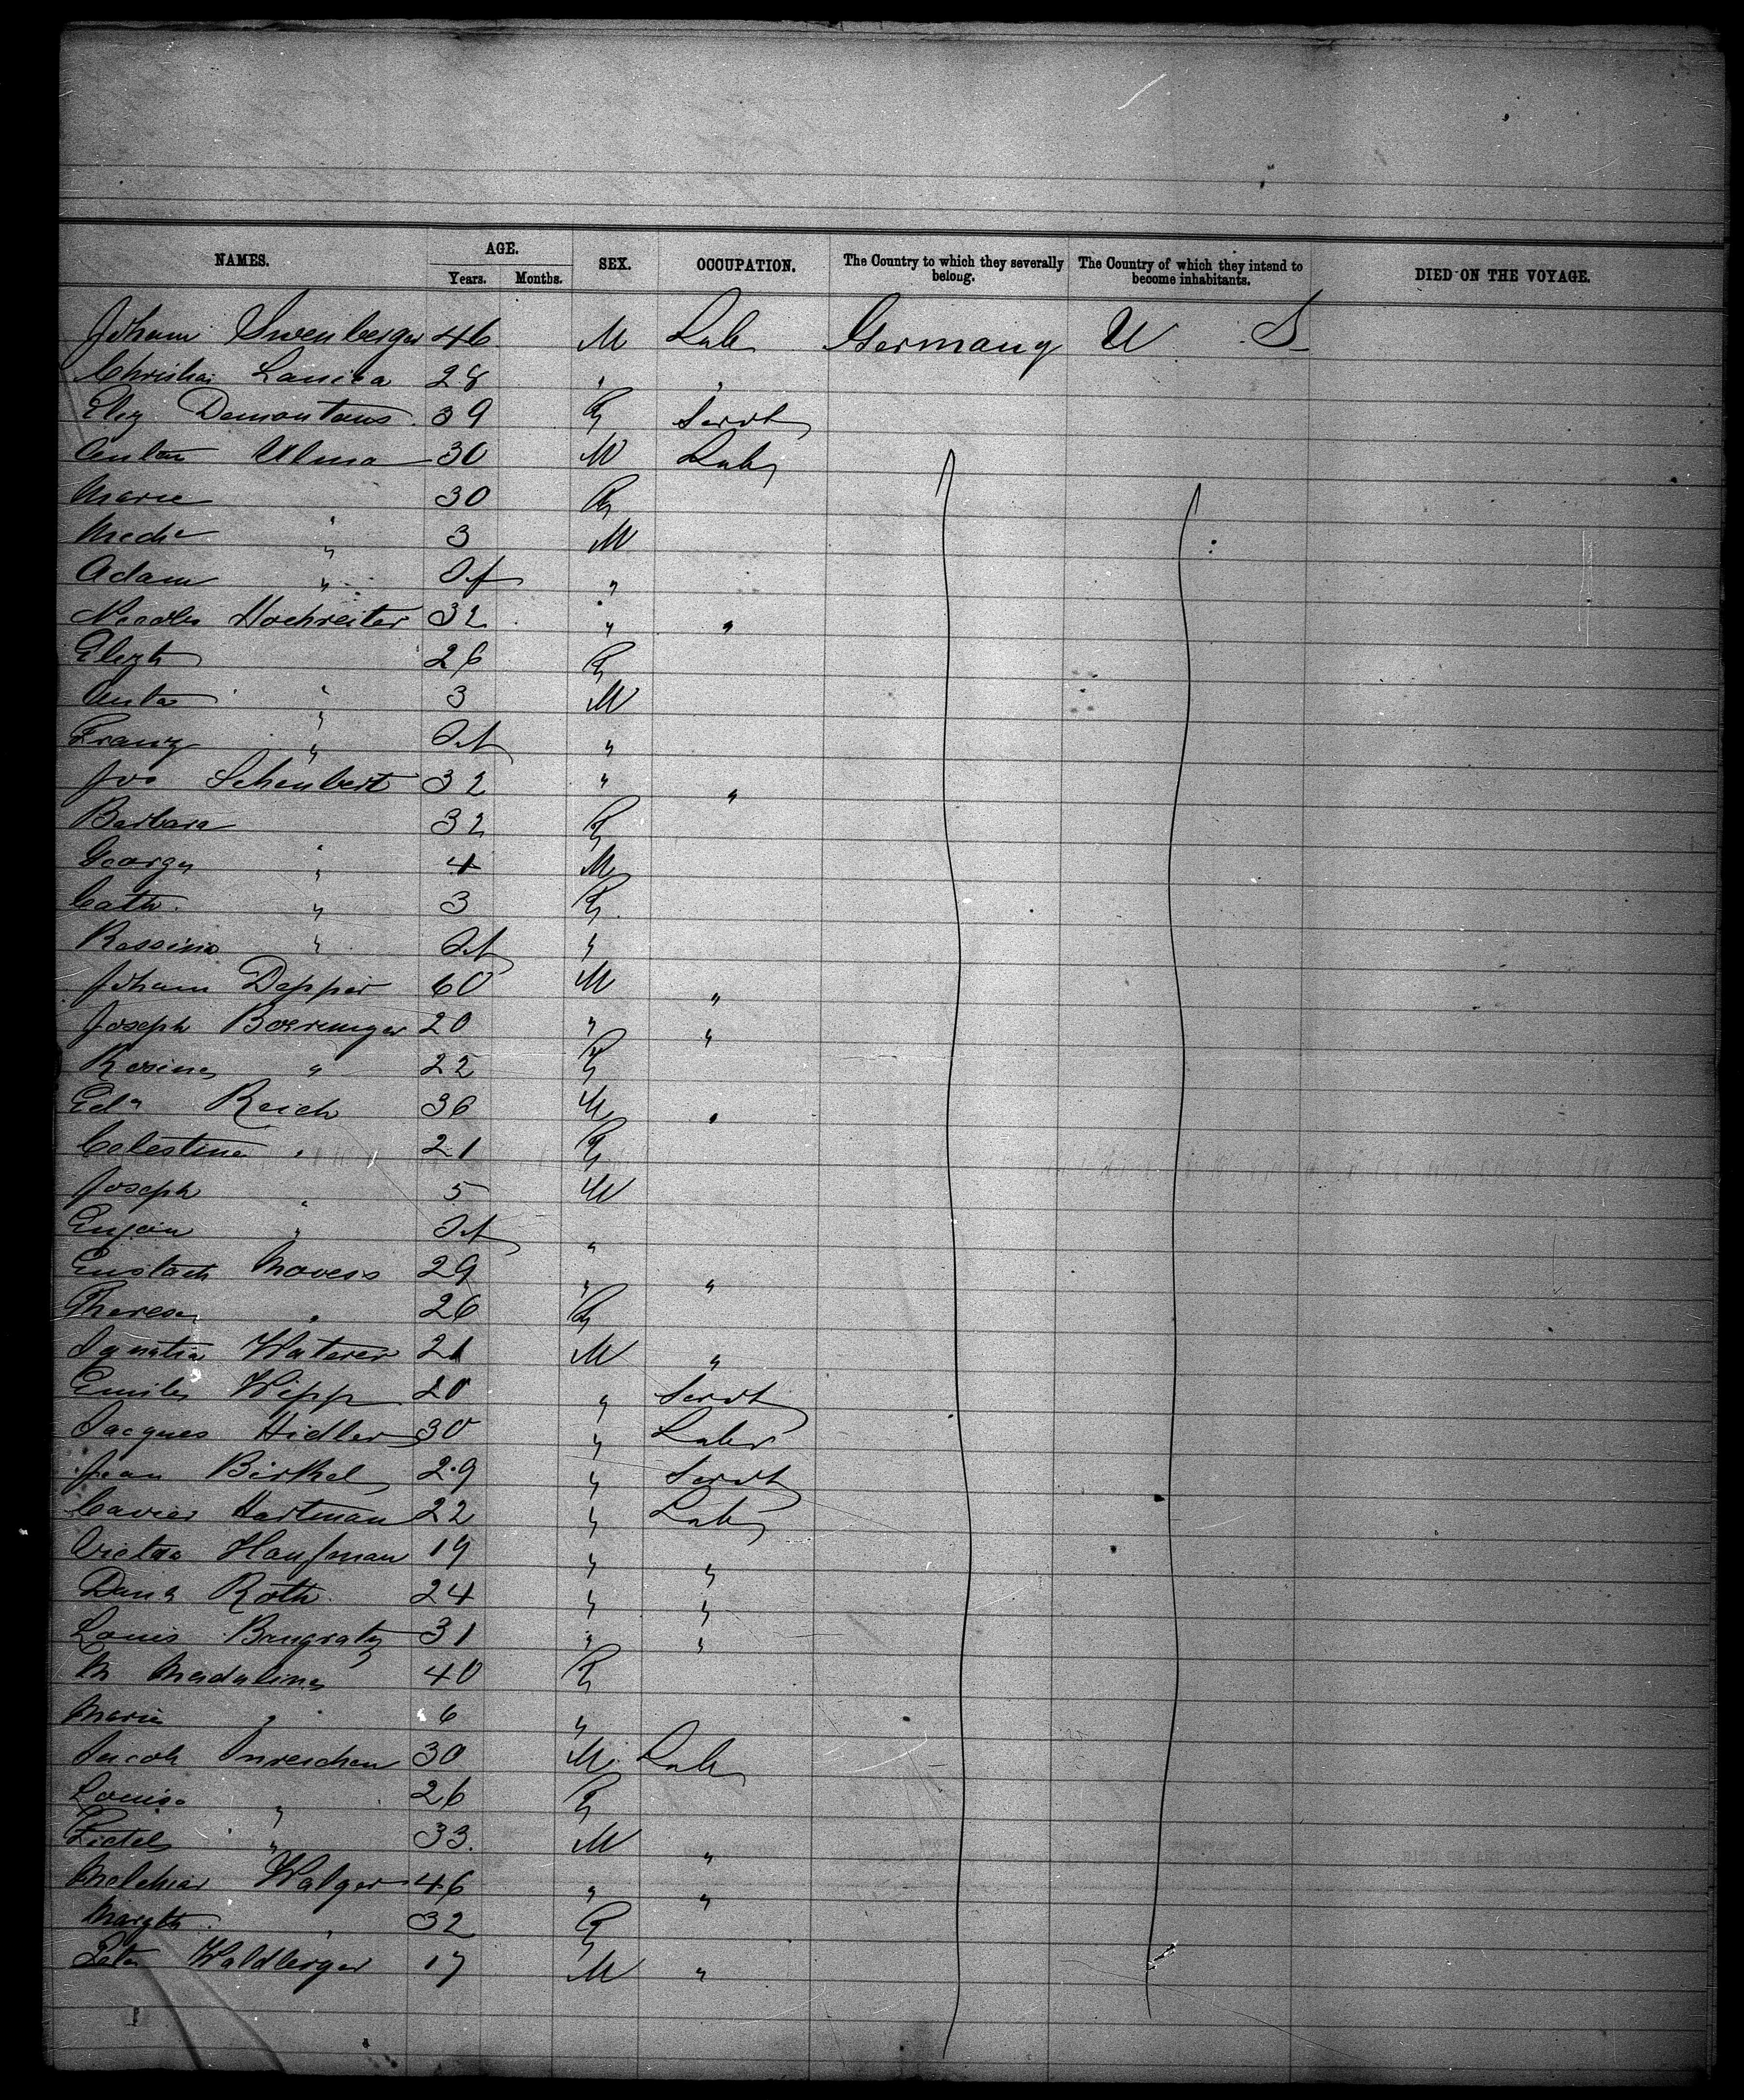 NAMES. AGE. SEX. OCCUPATION. The Country to which they severally belong. The Country of which they intend to become inhabitants. DIED ON THE VOYAGE.
Years. Months.
Johann Swenberger 46 M Lab Germany U S
Christian Lanica 28 " "
Eliz Demontans 39 F Servt
Anton Ulma 30 M Lab
Marie 30 F
" 3 M
Adam " Inf "
Hochreiter 32 " "
Elizth 26 F
Anton " 3 M
Franz " Inf "
Jos Scheubert 32 " "
Barbara 32 F
George " 4 M
Cath. " 3 F
Rossina " Inf "
Johann Depper 60 M "
Joseph Boeringer 20 " "
Rosina " 22 F
Edd Reich 36 M "
Celestine " 21 F
Joseph " 5 M
Eugen " Inf "
Eustach Movess 29 " "
Theresa " 26 F
Ignatia Waterer 21 M "
Emile Wipp 20 " Servt
Jacques Hidler 30 " Labr
Jean Birkel 29 " Servt
Cavier Hartman 22 " Lab
Victor Haufman 19 " "
Danl Roth. 24 " "
Louis Bangratz 31 " "
M Madaline 40 F
Marie " 6 "
Jacob Inreichen 30 M Lab
Louisa " 26 F
Fidel " 33. M "
Melchior Walger 46 " "
Margth. " 32 F
Peter Waldberger 17 M "